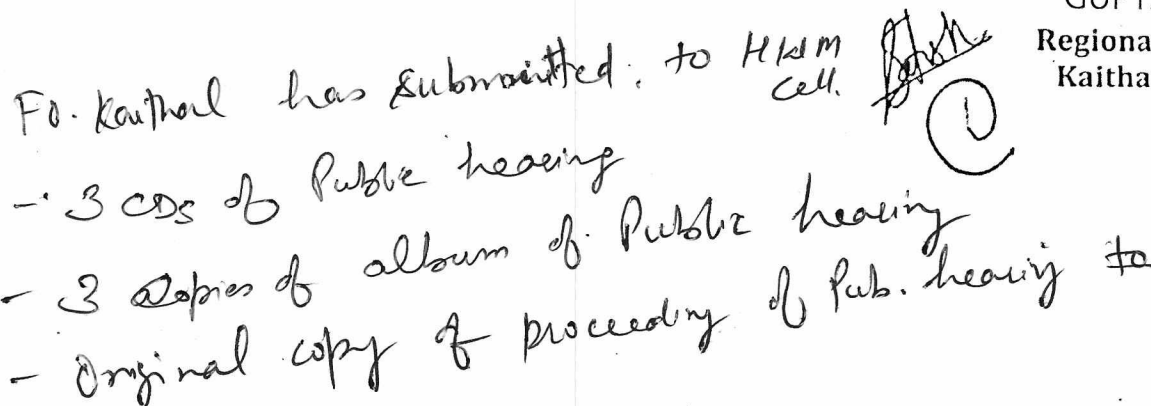 Regiona
Kaitha
Fo. Kaithal has submitted. to HWM
Cell.
- 3 CDs of Public hearing
- 3 copies of album of Public hearing
- Original copy of proceeding of Pub. hearing to